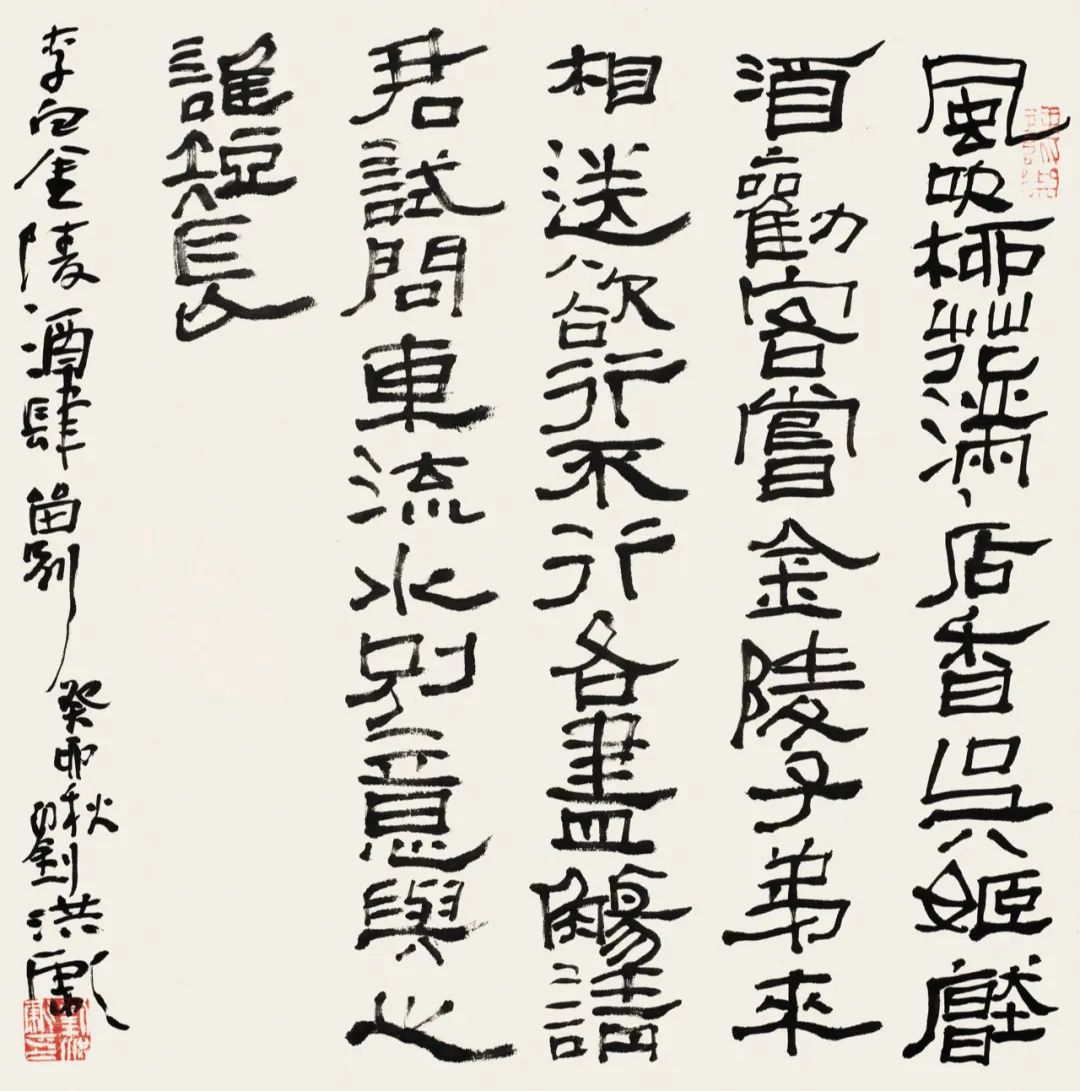 風吹柳花滿店香吳姬壓
酒勸客嘗金陵子弟來
相送欲行不行各盡觴請
君試問東流水別意與之
誰短長
李白金陵酒肆留別 癸卯秋劉洪彪